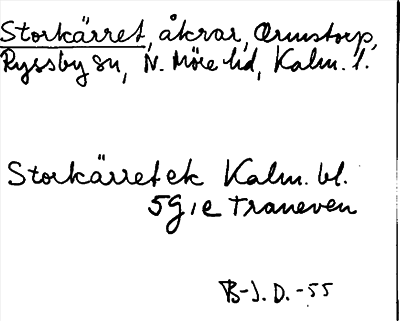 Storkärret, åkrar, Ormstorp,
Ryssby sn, N. Möre hd, Kalm. l.
Storkärret ek Kalm. bl.
5G1e Traneven
B-J. D. -55